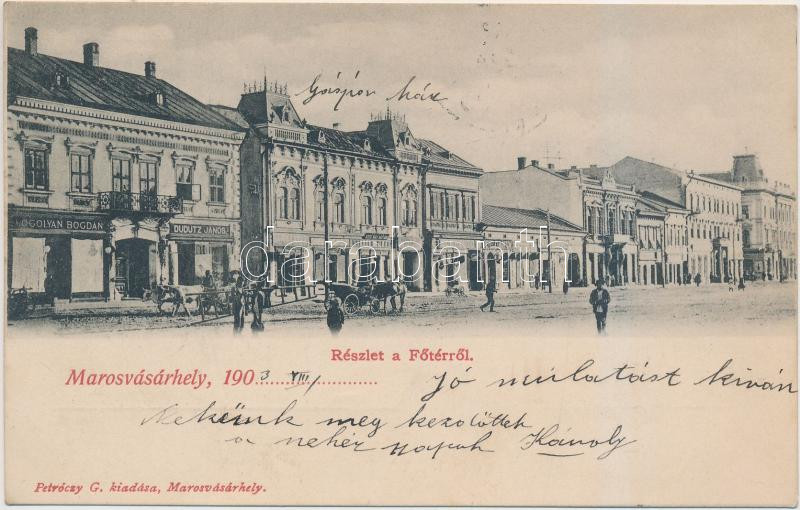 Gáspár ház
KOGOLYÁN BOGDÁN
DUDUTZ JÁNOS.
darabanth.com
Részlet a Főtérről.
Marosvásárhely, 1903 VIII/
Jó mulatást kiván
Nekünk meg kezdődtek
a nehéz napok Károly
Petróczy G. kiadása, Marosvásárhely.